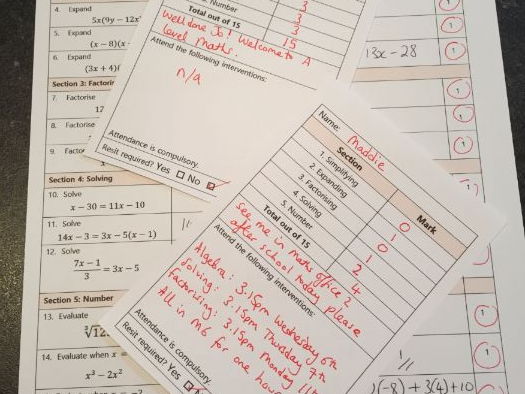 4. Expand
5x(9y − 12x
5. Expand
(x − 8)(x −
6. Expand
(3x + 4)(
Section 3: Factoris
7. Factorise
17
8. Factorise
9. Factor
Section 4: Solving
10. Solve
x − 30 = 11x − 10
11. Solve
14x − 3 = 3x − 5(x − 1)
12. Solve
7x − 1
3
= 3x − 5
Section 5: Number
13. Evaluate
14. Evaluate when x =
x³ − 2x²
Number
Total out of 15
3
3
3
15
Well done Jo! Welcome to A
Level Maths.
Attend the following interventions:
n/a
Attendance is compulsory.
Resit required? Yes ☐ No ☒
13x − 28
1
1
1
1
1
1
1
Name: Maddie
Section
Mark
1. Simplifying
0
2. Expanding
0
3. Factorising
1
4. Solving
2
5. Number
4
Total out of 15
See me in maths office 2
after school today please
Attend the following interventions:
Algebra: 3.15pm Wednesday 6th
Solving: 3.15pm Thursday 7th
Factorising: 3.15pm Monday 11th
All in M6 for one hour
Attendance is compulsory.
Resit required? Yes
(−8) + 3(4) + 10